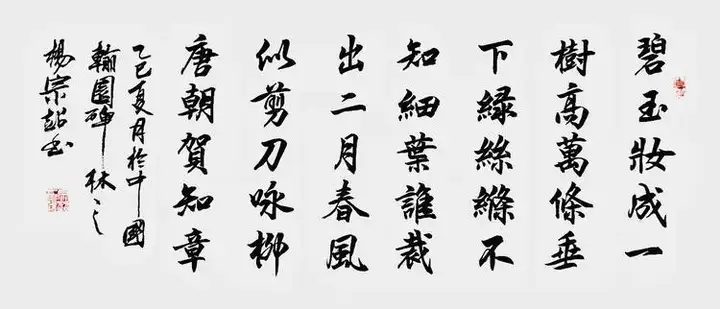 碧玉妝成一
樹高萬條垂
下緑絲縧不
知細葉誰裁
出二月春風
似剪刀咏柳
唐朝賀知章
乙巳夏月於中國
翰園碑林
楊宗书